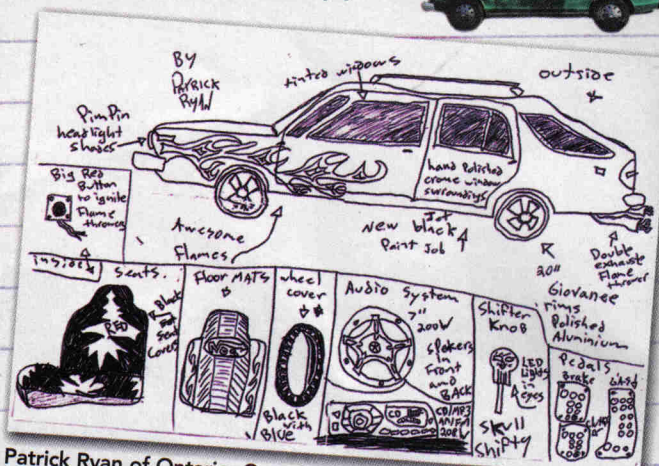 BY
Patrick
Ryan
tinted windows
outside
PimPin
headlight
shades
hand Polished
crome window
surroundings
Big Red
Button
to ignite
Flame
thrower
Awesome
Flames
New Jet black
Paint Job
20"
Giovanee
rims
Polished
Aluminium
Double
exhaust
Flame
thrower
inside
seats
RED
Black
Seat
Covers
Floor MATS
wheel
cover
Black
with
Blue
Audio System
7"
200W
spekers
in
Front
and
BACK
CD
CD/MP3
AM/FM
208W
Shifter
Knob
LED
Lights
in
eyes
Skull
Shifty
Pedals
Brake
Patrick Ryan of Ontario